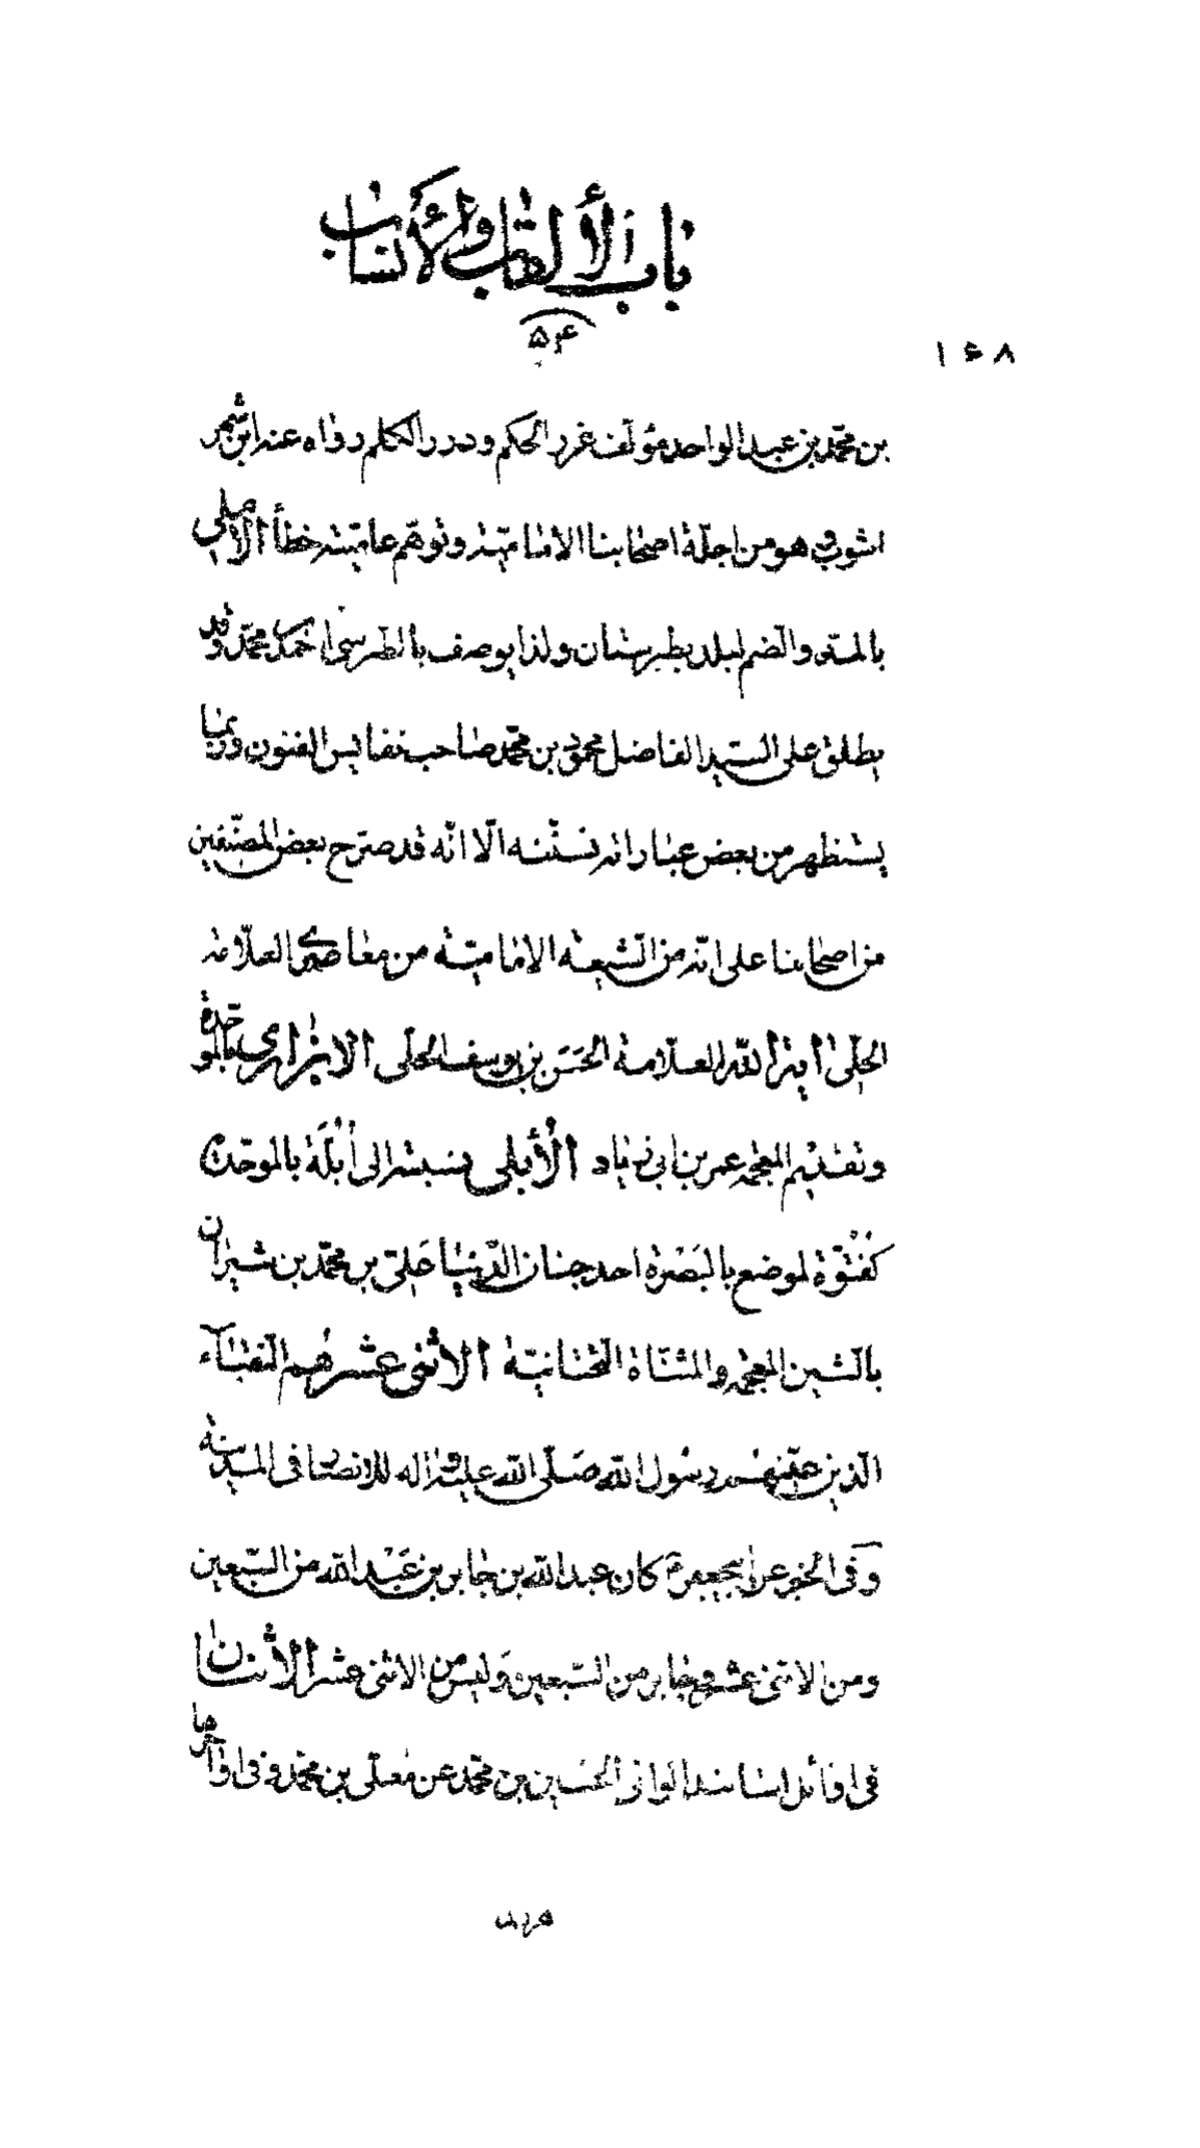 باب الألقاب والأنساب
۵۴
۱۶۸
بن محمّد بن عبد الواحد مؤلّف غرر الحكم ودرر الكلم رواه عنه ابن شهر
اشوب وهو من اجلّة اصحابنا الاماميّة وتوهّم عاميّته خطأ الاملى
بالمد والضم لبلد بطبرستان ولذا يوصف بالطبرسى احمد بن محمّد وقد
يطلق على السيّد الفاضل محمود بن محمّد صاحب نفايس الفنون وربما
يستظهر من بعض عباراته تسنّنه الّا انّه قد صرّح بعض المصنّفين
من اصحابنا على انّه من الشيعة الاماميّة من معاصرى العلّامة
الحلّى اية الله العلّامة الحَسَن بن يوسف الحلّى الابزارى بالموحّدة
وتقديم المعجمة عمر بن ابى زياد الأُبلى نسبته الى أُبُلَّة بالموحّدة
كعُتُوّة لموضع بالبَصْرة احد جنان الدّنيا عَلىّ بن محمّد بن شيران
بالشين المعجمة والمثنّاة التحتانيّة الاثنى عشر هُم النّقباء
الّذين عيّنهُم رسُول الله صَلّى الله عليه واله للانصار فى المدينة
وَفى الخبر عن ابى جعفر ع كان عبد الله بن جابر بن عَبْد الله من السّبعين
ومن الاثنى عشر وجابر من السّبعين وَليس من الاثنى عشر الأثنان
فى اوائل اسانيد الوافى الحُسَين بن محمّد عن مُعلّى بن محمّد وفى اواخرها